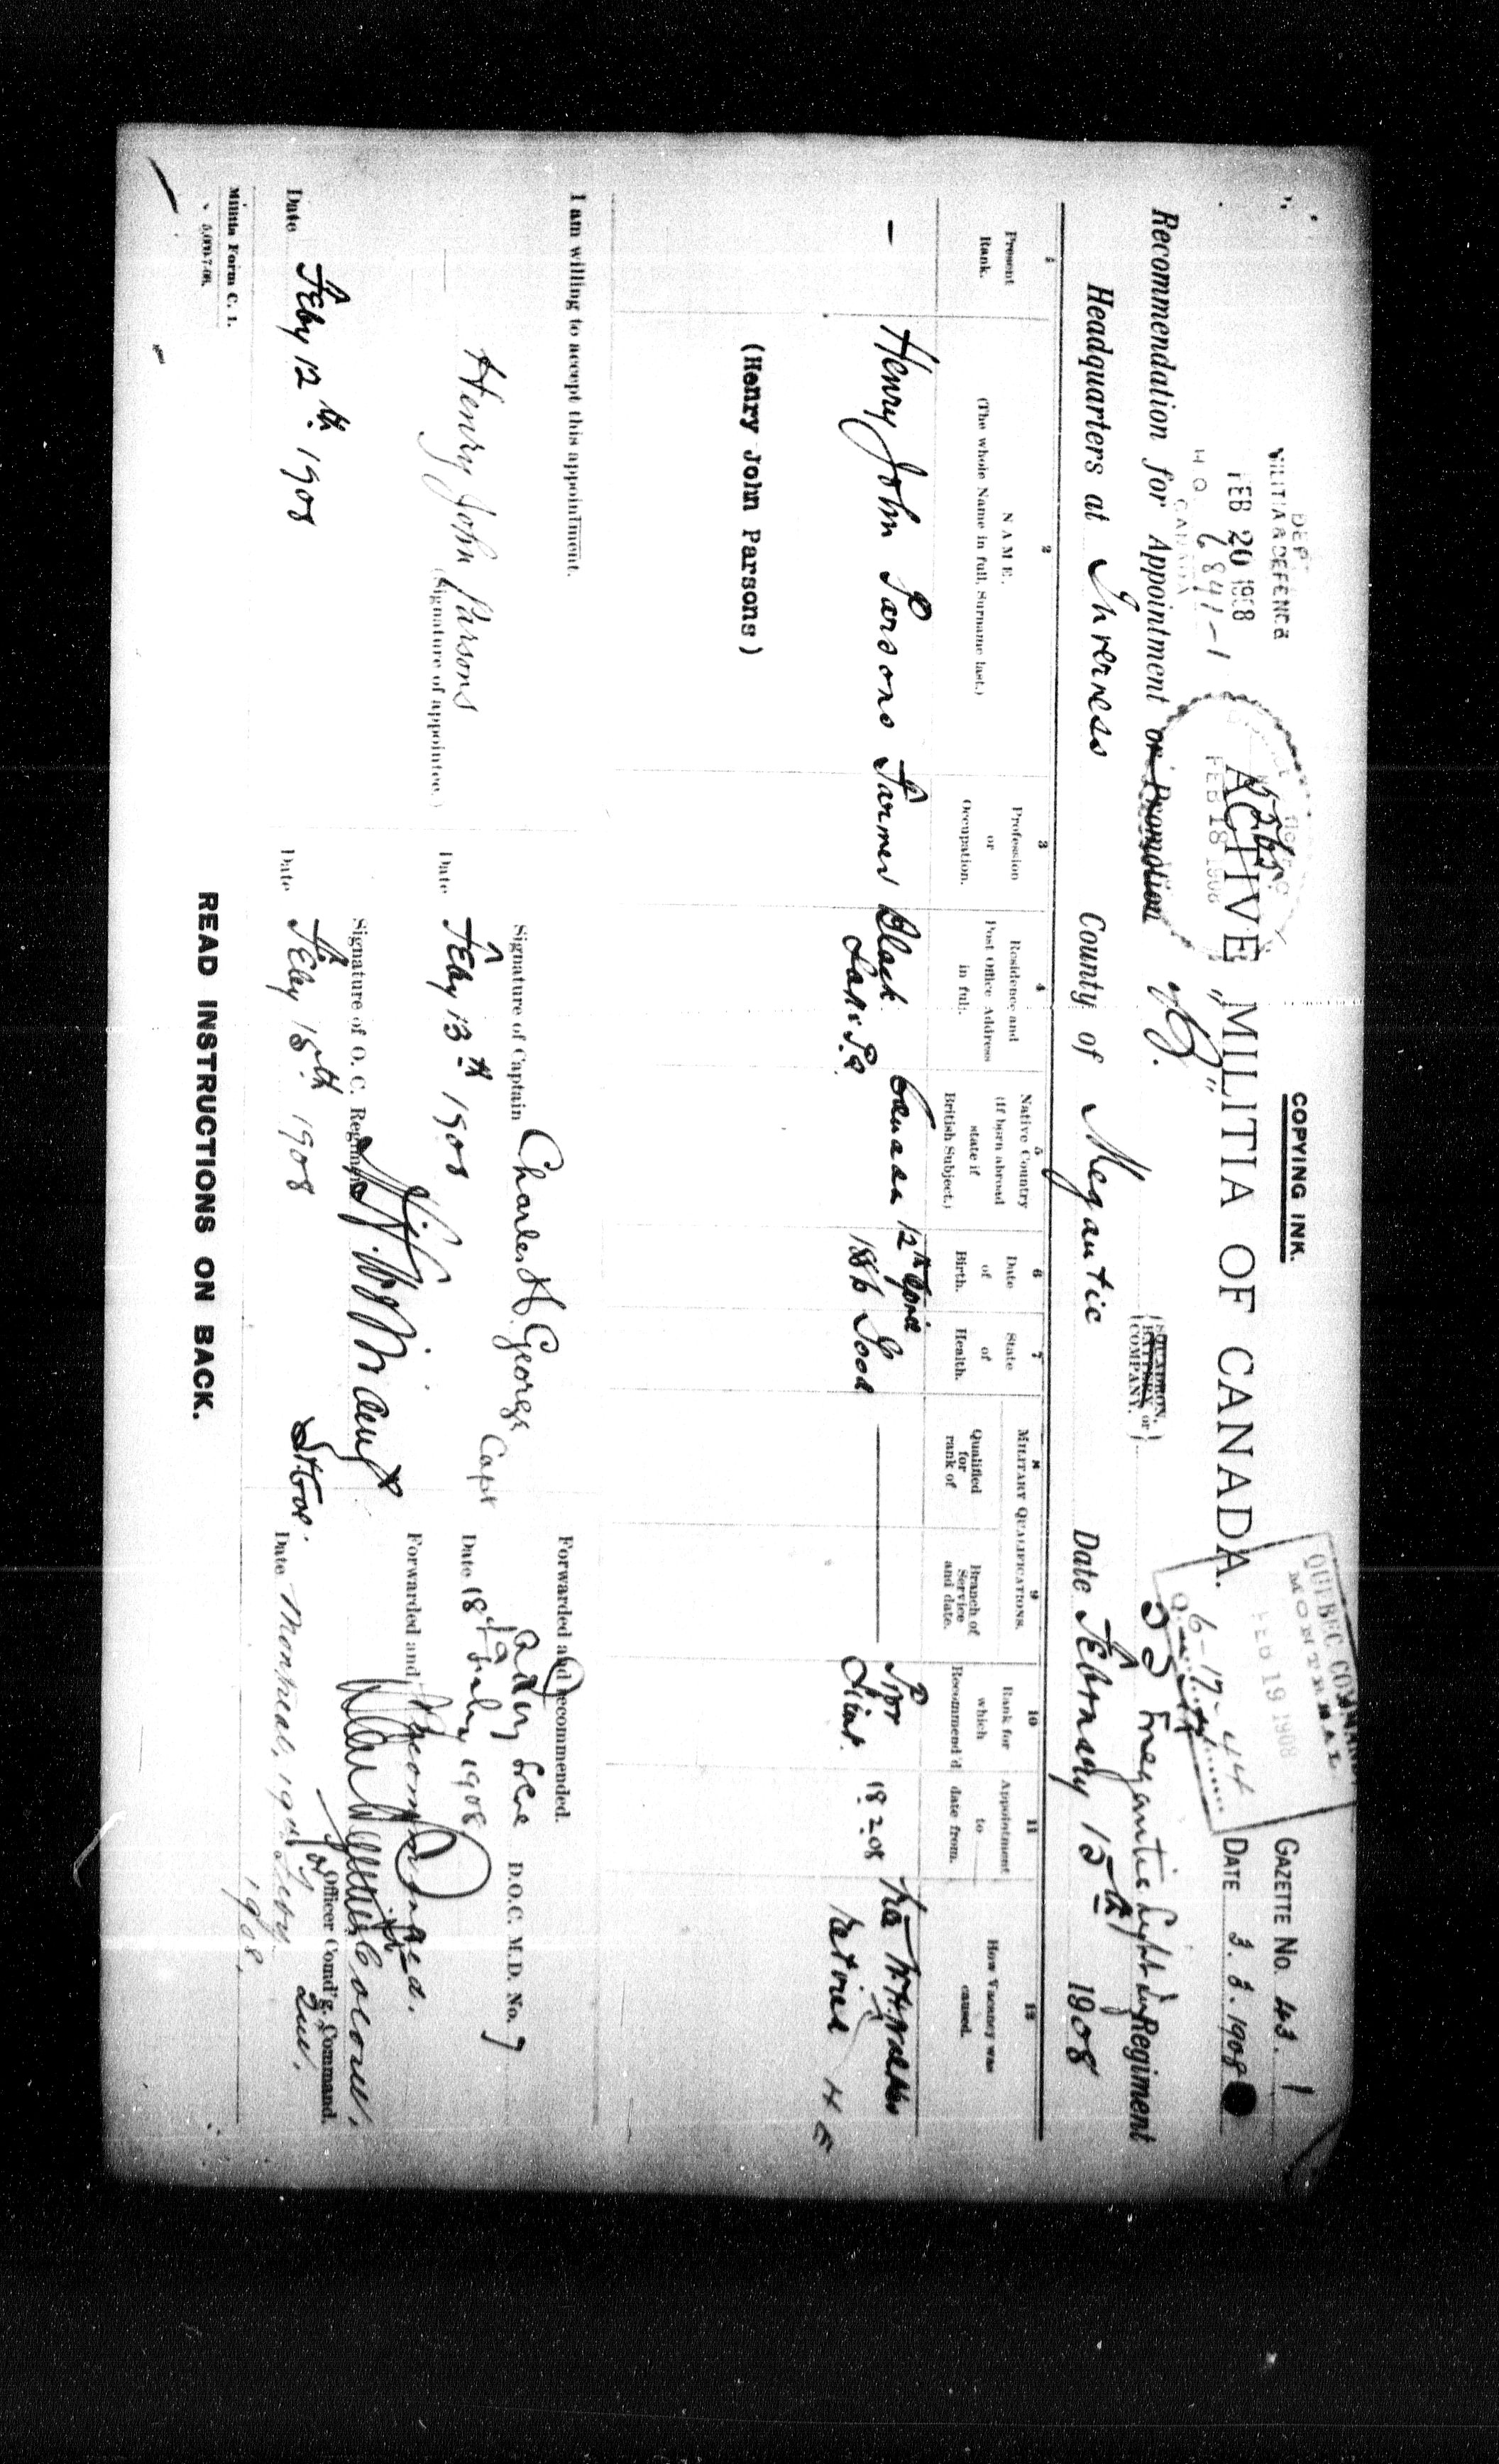 COPYING INK.
GAZETTE NO. 43. 1
DATE 3. 3. 1908
DEPT
MILITIA & DEFENCE
FEB 20 1908
6841-1
H.Q. CANADA
FEB 18 1908
QUEBEC COMMAND
MONTREAL
FEB 19 1908
6-17-44
ACTIVE MILITIA OF CANADA.
Recommendation for Appointment or Promotion "B" { SQUADRON, BATTERY or COMPANY. } 55 Megantic Light Inf Regiment
Headquarters at Inverness County of Megantic Date February 15th 1908
1 Present Rank.
2 NAME. (The whole Name in full, Surname last.)
3 Profession or Occupation.
4 Residence and Post Office Address in full.
5 Native Country (If born abroad state if British Subject.)
6 Date of Birth.
7 State of Health.
MILITARY QUALIFICATIONS.
8 Qualified for rank of
9 Branch of Service and date.
10 Rank for which Recommend'd
11 Appointment to date from.
12 How Vacancy was caused.
— Henry John Parsons Farmer Black Lake P.Q. Canada 12th April 1886 Good Prov Lieut. 18.2.08 retired
(Henry John Parsons)
I am willing to accept this appointment.
Henry John Parsons
(Signature of appointee.)
Date Feby 12th 1908
Signature of Captain Charles H. George Capt
Date Feby 13th 1908
Signature of O. C. Regiment
Date Feby 15th 1908
Forwarded and recommended.
D.O.C. M.D. No. 7
Date 18th 1908
Forwarded and Recommended.
for Officer Comd'g. Command.
Date Montreal, 19th Feby 1908.
Militia Form C. 1.
5,000-7-06.
READ INSTRUCTIONS ON BACK.